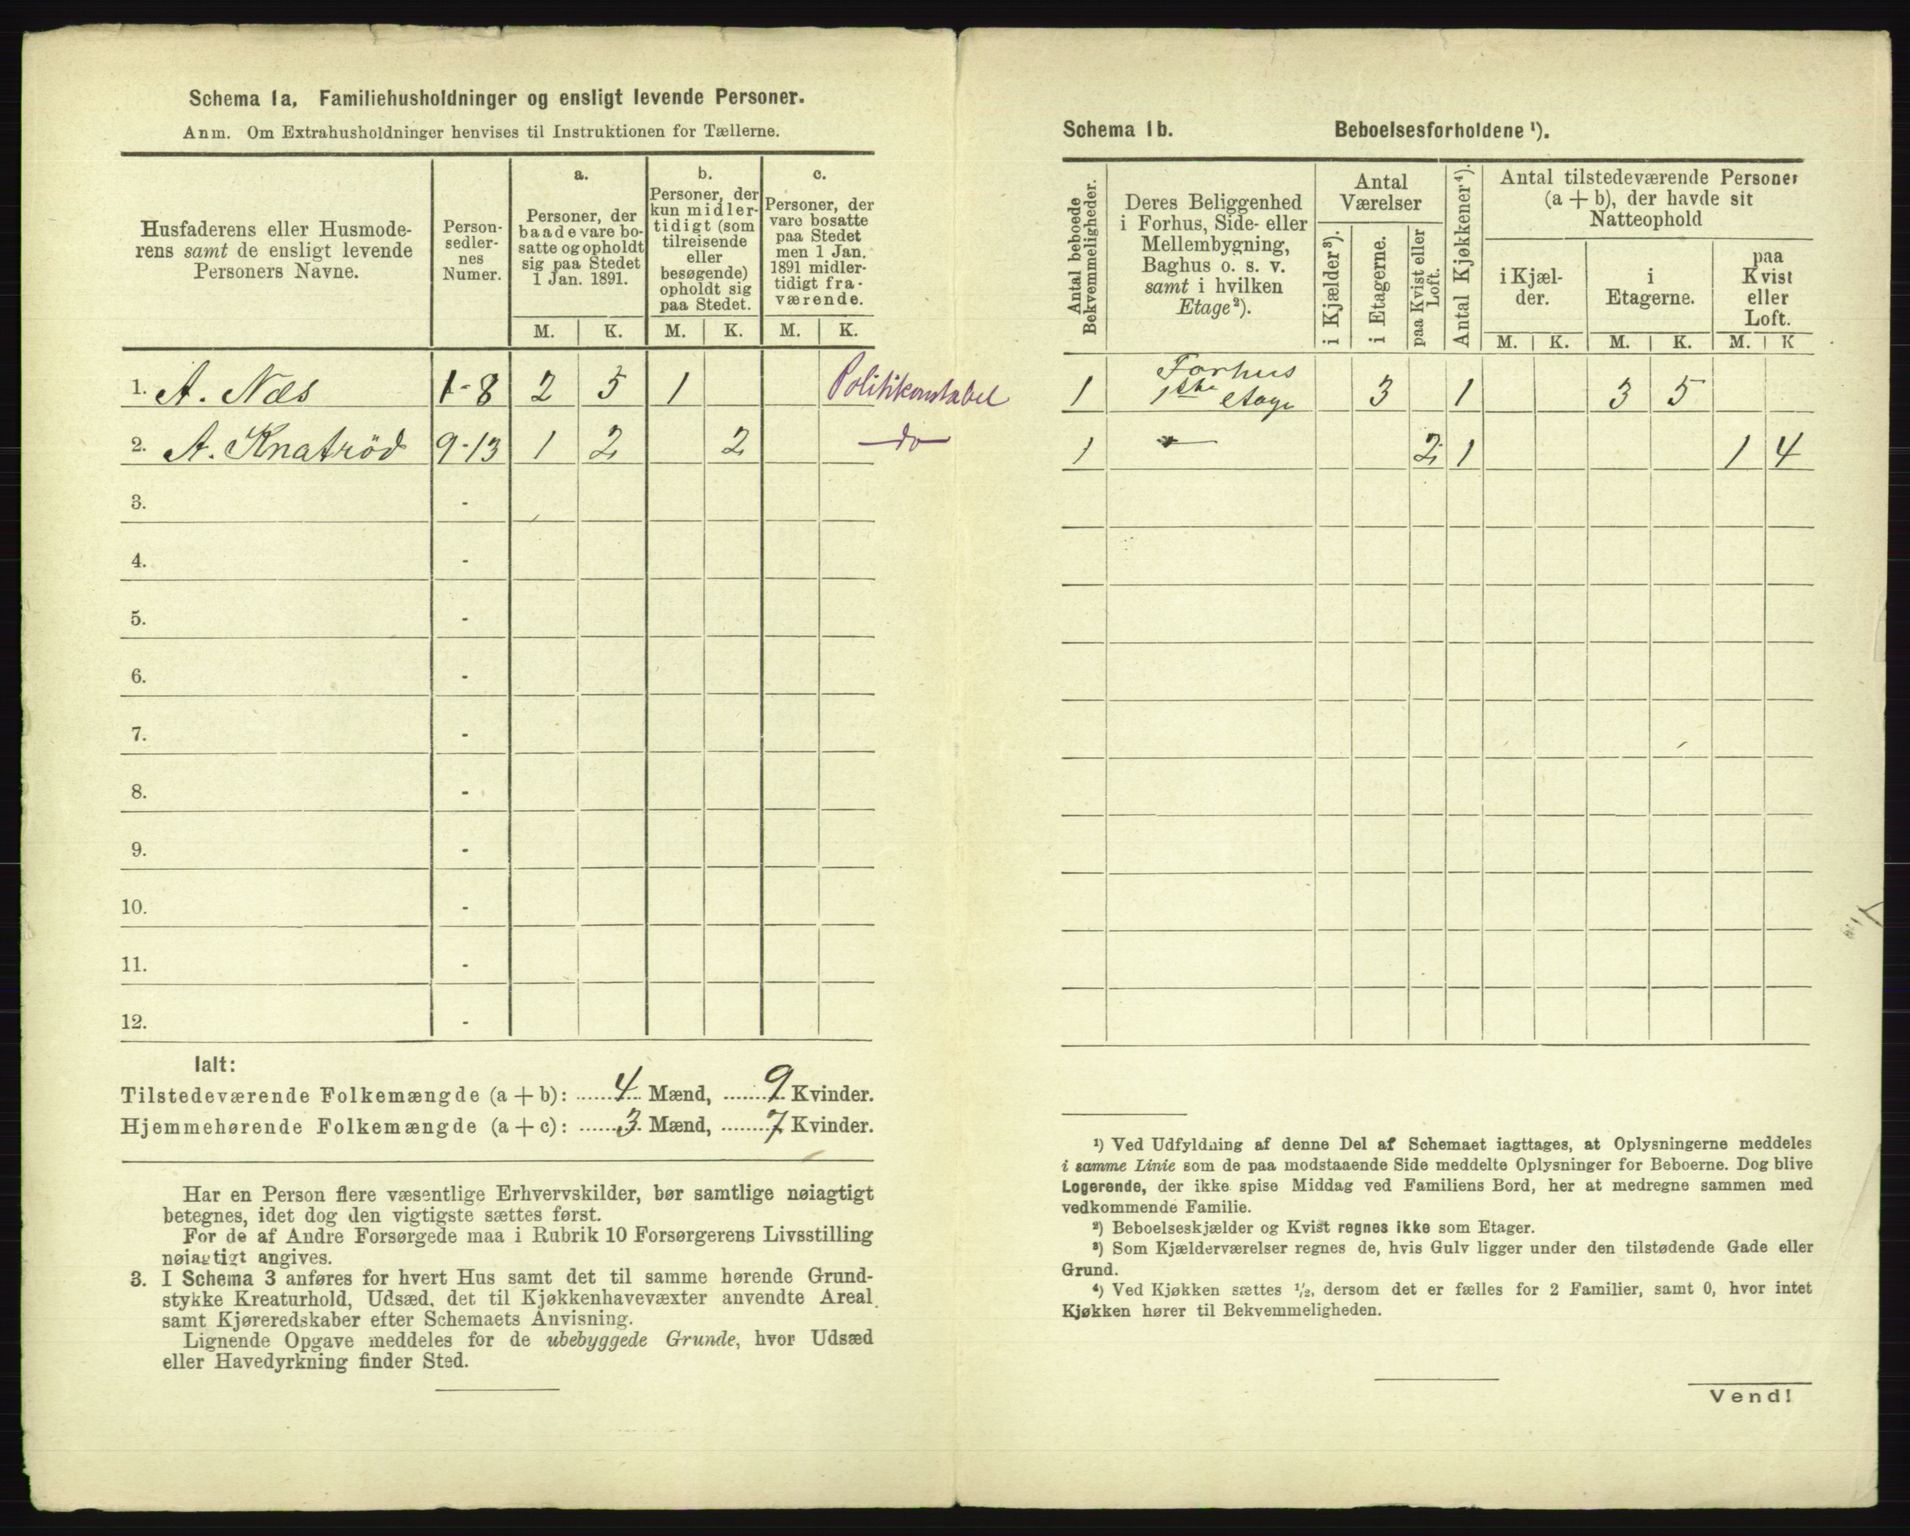 Schema 1a, Familiehusholdninger og ensligt levende Personer.
Anm. Om Extrahusholdninger henvises til Instruktionen for Tællerne.
Husfaderens eller Husmode-
rens samt de ensligt levende
Personers Navne.
Person-
sedler-
nes
Numer.
a.
Personer, der
baade vare bo-
satte og opholdt
sig paa Stedet
1 Jan. 1891.
b.
Personer, der
kun midler-
tidigt (som
tilreisende
eller
besøgende)
opholdt sig
paa Stedet.
c.
Personer, der
vare bosatte
paa Stedet
men 1 Jan.
1891 midler-
tidigt fra-
værende.
M. K. M. K. M. K.
1. A. Næs 1-8 2 5 1 Politikonstabel
2. A. Knatröd 9-13 1 2 2 do
3. -
4. -
5. -
6. -
7. -
8. -
9. -
10. -
11. -
12. -
Ialt:
Tilstedeværende Folkemængde (a + b): 4 Mænd, 9 Kvinder.
Hjemmehørende Folkemængde (a + c): 3 Mænd, 7 Kvinder.
Har en Person flere væsentlige Erhvervskilder, bør samtlige nøiagtigt
betegnes, idet dog den vigtigste sættes først.
For de af Andre Forsørgede maa i Rubrik 10 Forsørgerens Livsstilling
nøiagtigt angives.
3. I Schema 3 anføres for hvert Hus samt det til samme hørende Grund-
stykke Kreaturhold, Udsæd, det til Kjøkkenhavevæxter anvendte Areal
samt Kjøreredskaber efter Schemaets Anvisning.
Lignende Opgave meddeles for de ubebyggede Grunde, hvor Udsæd
eller Havedyrkning finder Sted.
Schema 1b. Beboelsesforholdene ¹).
Antal beboede
Bekvemmeligheder.
Deres Beliggenhed
i Forhus, Side- eller
Mellembygning,
Baghus o. s. v.
samt i hvilken
Etage²).
Antal
Værelser
i Kjælder³).
i Etagerne.
paa Kvist eller
Loft.
Antal Kjøkkener⁴).
Antal tilstedeværende Personer
(a + b), der havde sit
Natteophold
i Kjæl-
der.
i
Etagerne.
paa
Kvist
eller
Loft.
M. K. M. K. M. K
1 Forhus
1ste etage 3 1 3 5
1 -"- 2 1 1 4
¹) Ved Udfyldning af denne Del af Schemaet iagttages, at Oplysningerne meddeles
i samme Linie som de paa modstaaende Side meddelte Oplysninger for Beboerne. Dog blive
Logerende, der ikke spise Middag ved Familiens Bord, her at medregne sammen med
vedkommende Familie.
²) Beboelseskjælder og Kvist regnes ikke som Etager.
³) Som Kjælderværelser regnes de, hvis Gulv ligger under den tilstødende Gade eller
Grund.
⁴) Ved Kjøkken sættes ½, dersom det er fælles for 2 Familier, samt 0, hvor intet
Kjøkken hører til Bekvemmeligheden.
Vend!